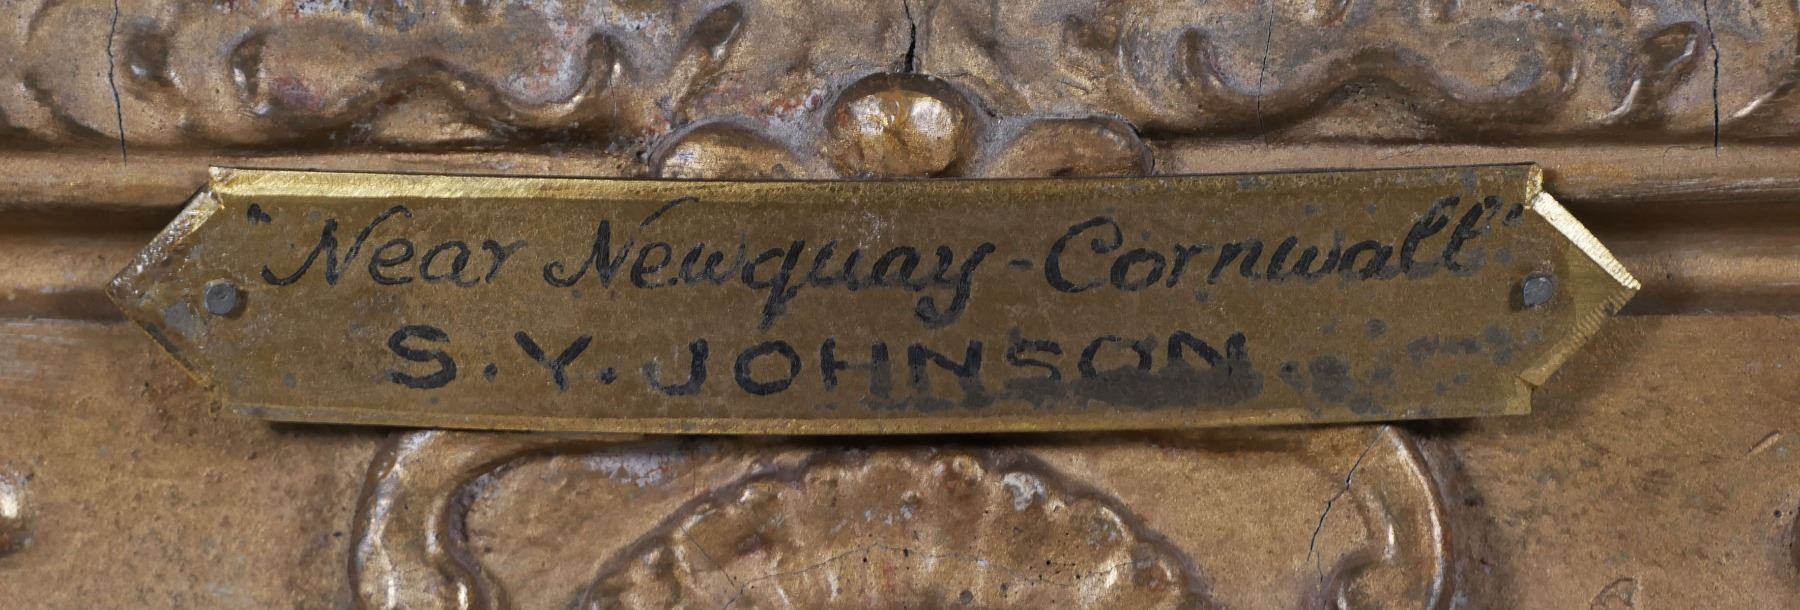 "Near Newquay - Cornwall"
S. Y. JOHNSON.